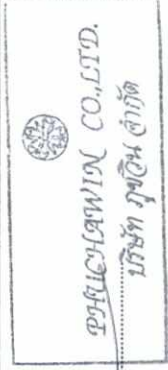 PHUCHAWIN CO.,LTD.
บริษัท ภูชวิน จำกัด